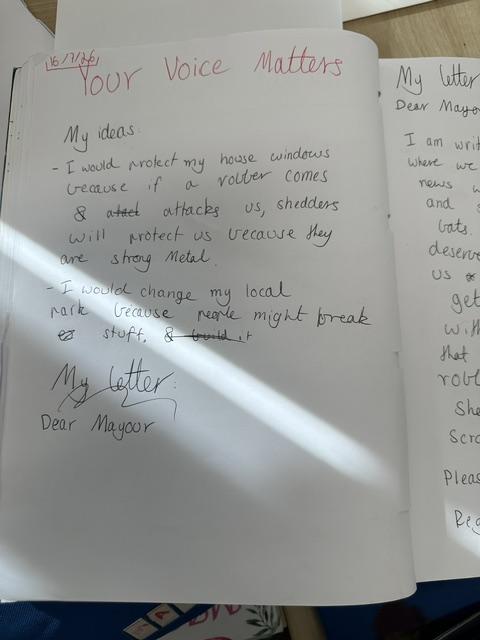 16/7/26
Your Voice Matters
My ideas:
- I would protect my house windows
because if a robber comes
& attacks us, shedders
will protect us because they
are strong Metal.
- I would change my local
park because people might break
stuft. & build it
My letter:
Dear Mayour
My letter
Dear Mayo
I am writ
where we
news w
and
bats.
deserve
us
get
with
that
robb
She
Scr
Pleas
Reg